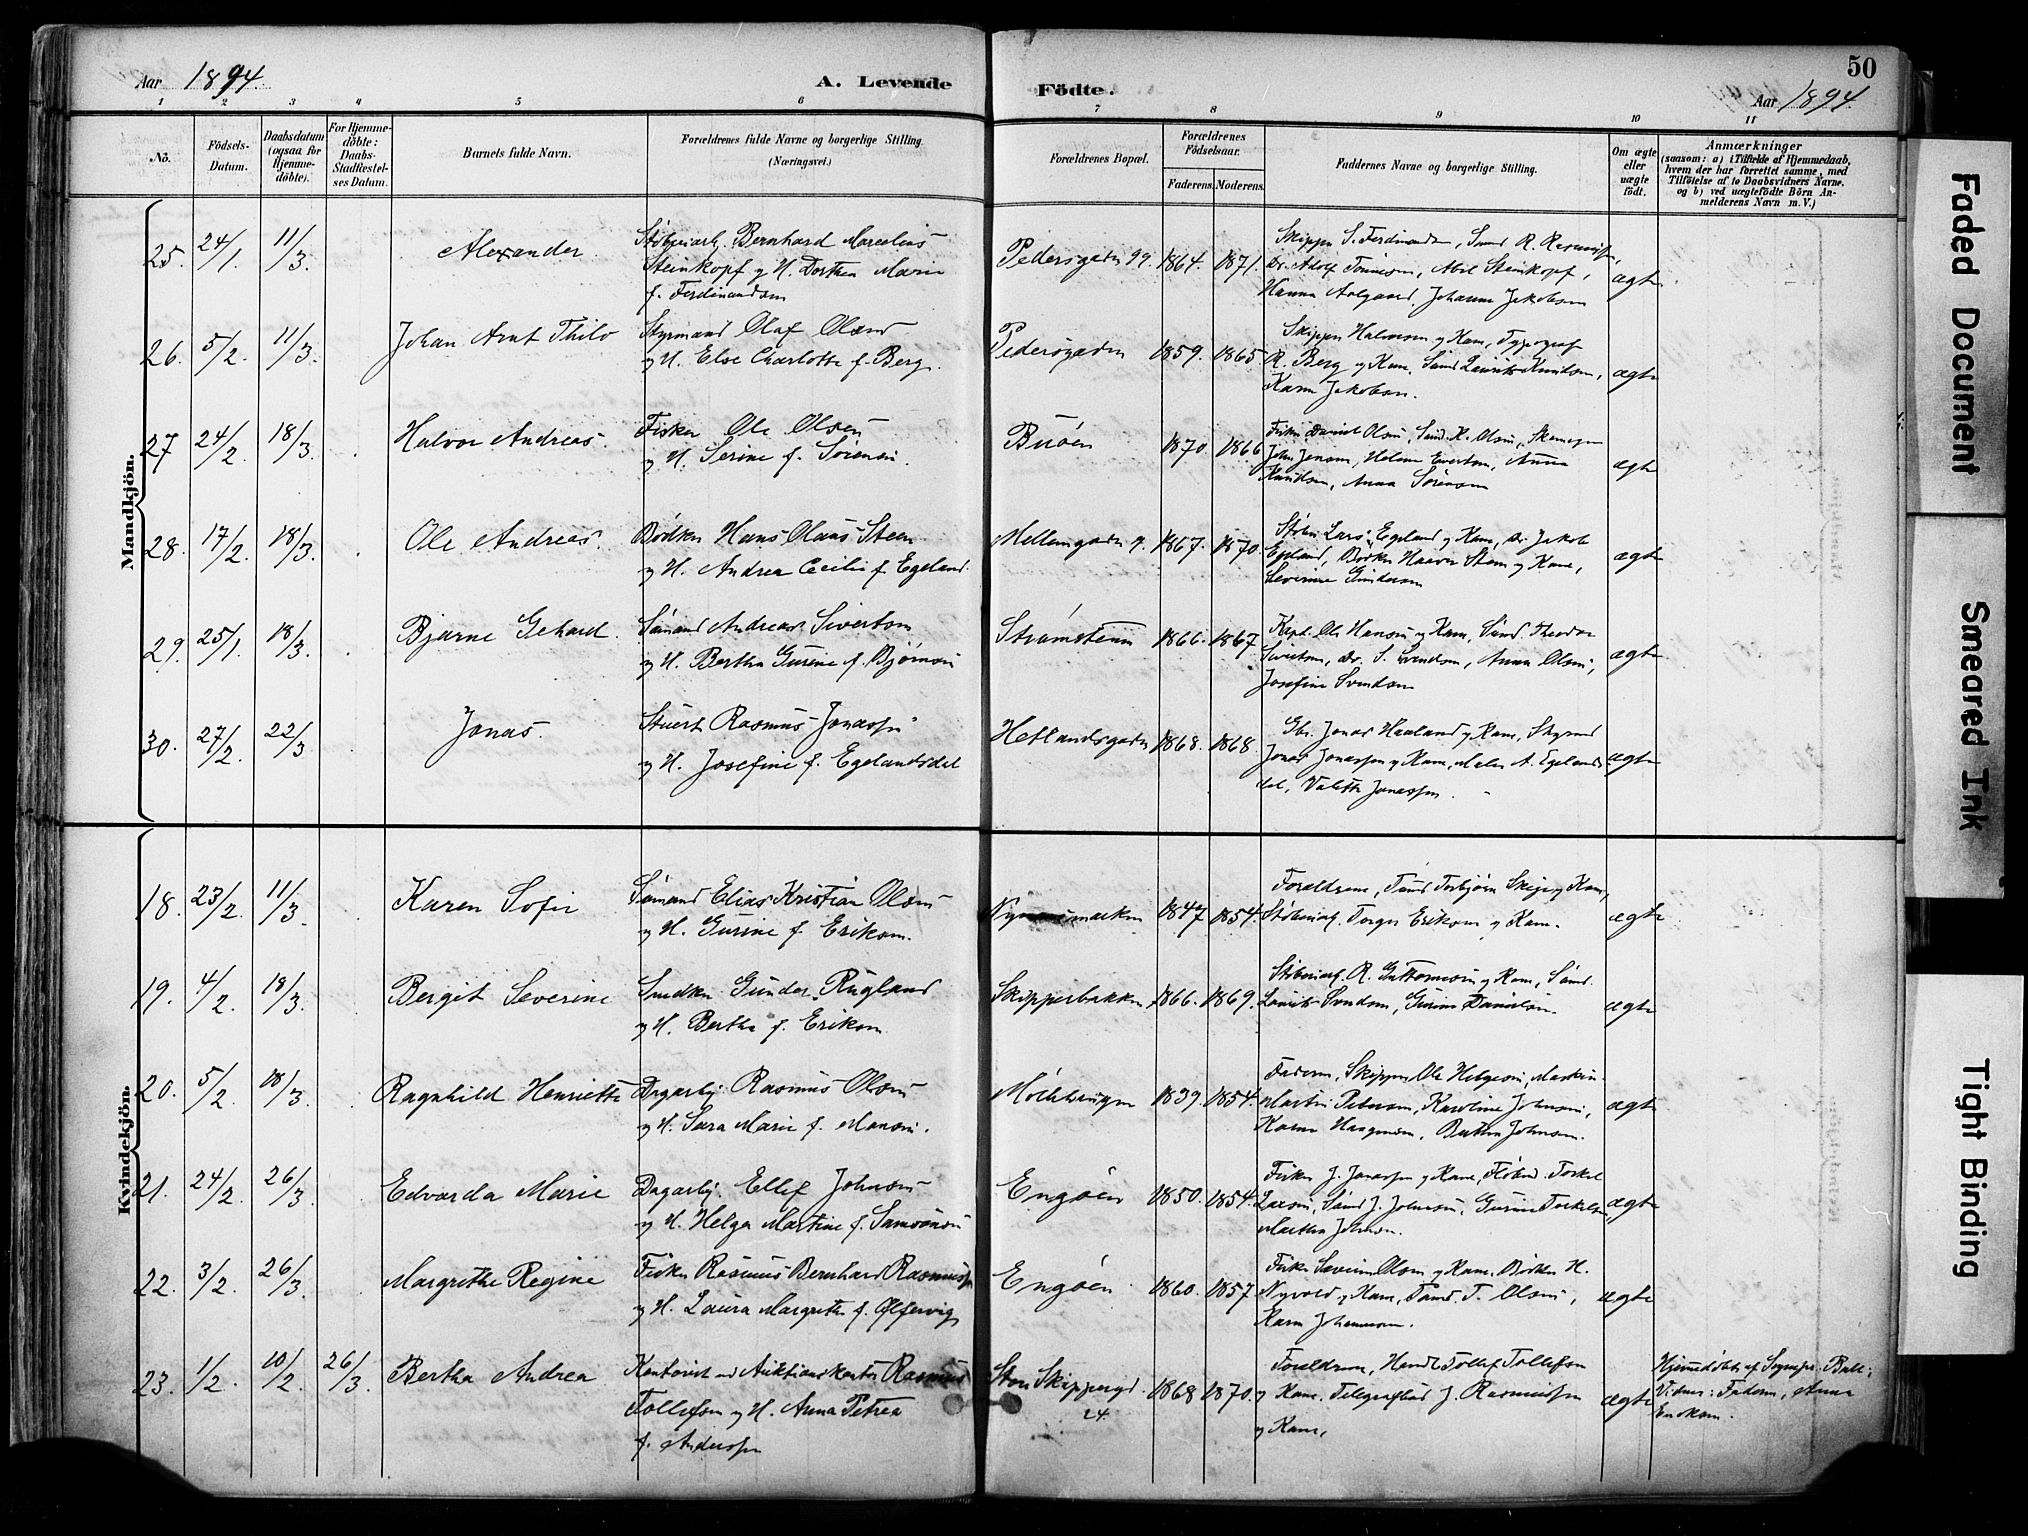 Aar 1894.
A. Levende
Födte.
Aar 1894.
50
1 2 3 4 5 6 7 8 9 10 11
No.
Födsels-
Datum.
Daabsdatum
(ogsaa for
Hjemme-
döbte).
For Hjemme-
döbte:
Daabs-
Stadfæstel-
ses Datum.
Barnets fulde Navn.
Forældrenes fulde Navne og borgerlige Stilling
(Næringsvei.)
Forældrenes Bopæl.
Forældrenes
Födselsaar.
Faderens. Moderens.
Faddernes Navne og borgerlige Stilling.
Om ægte
eller
uægte
födt.
Anmærkninger
(saasom: a) i Tilfælde af Hjemmedaab,
hvem der har forrettet samme, med
Tilföielse af to Daabsvidners Navne.
og b) ved uægtefödte Börn An-
melderens Navn m. V.)
Mandkjön.
25. 24/1. 11/3. Alexander.
Støberiarb. Bernhard Marcelius
Steinkopf og H. Dorthea Marie
f. Ferdinandsen
Pedersgaden 99. 1864. 1871.
Skipper S. Ferdinands, Sømd R.
Dr. Adolf Tønnesen, Abel Steinkopf,
Hanna Aalgaard, Johanne Jakobsen
ægte
26. 5/2. 11/3. Johan Arnt Thilo
Styrmand Olaf Olsen
og H. Else Charlotte f. Berg.
Pedersgaden 1859. 1865
Skipper Halvorsen og Kone, Typograf
R. Berg og Kone. Sømd Laurits Knudsen,
Karen Jakobsen.
ægte
27 24/2. 18/3. Halvor Andreas.
Fisker Ole Olsen
og H. Serine f. Sörensen.
Buöen 1870. 1866
Fisker Daniel Olsen, Sømd. K. Olsen,
John Jensen, Helene Evertsen, Anna
Knudsen, Anna Sørensen
ægte
28. 17/2. 18/3. Ole Andreas.
Bødker Hans Olaus Steen
og H. Andrea Cecilie f. Egeland.
Mellemgaden 9. 1867. 1870.
Støber Lars Egeland og Kone, Dr. Jakob
Egeland, Bødker Haaver Steen og Kone,
Severine Gundersen
ægte
29. 25/1. 18/3. Bjarne Gehard.
Sømand Andreas Sivertsen
og H. Bertha Gurine f. Bjørnsen
Strømstenen 1866. 1867
Kapt. Ole Hansen og Kone, Sømd. Theodor
Sivertsen, Dr. S. Svendsen, Anna Olsen,
Josefine Svendsen
ægte
30. 27/2. 22/3. Jonas.
Stuert Rasmus Jonassen
og H. Josefine f. Egelandsdal
Hetlandsgaden 1868. 1868.
Gbr. Jonas Haaland og Kone, Styrmd
Jonas Jonassen og Kone, Maler A. Egelands
dal, Valette Jonassen.
ægte
Kvindekjön.
18. 23/2. 11/3. Karen Sofie
Sømand Elias Kristian Olsen
og H. Gurine f. Eriksen.
1847 1854.
Forældrene, Tømd Torbjörn Skeie og Kone,
Støberiarb. Torger Eriksen og Kone.
ægte
19. 4/2. 18/3. Bergit Severine
Snedker Gunder Rugland
og H. Bertha f. Eriksen
Skipperbakken 1866. 1869.
Støberiarb. R. Guttormsen og Kone, Sømd.
Laurits Svendsen, Gurine Danielsen.
ægte
20. 5/2. 18/3. Ragnhild Henriette
Dagarbj. Rasmus Olsen
og H. Sara Marie f. Monsen.
1839. 1854.
Faderen, Skipper Ole Helgesen, Maskin.
Martin Pedersen, Karoline Johnsen,
Karen Haagensen, Berthe Johnsen.
ægte
21. 24/2. 26/3. Edvarda Marie
Dagarbj. Ellef Johnsen
og H. Helga Martine f. Samsonsen
Engøen 1850. 1854.
Fisker J. Jonassen og Kone, Torkel
Larsen, Sømd J. Johnsen, Gurine Torkelsen,
Martha Johnsen.
ægte
22. 3/2. 26/3. Margrethe Regine
Fisker Rasmus Bernhard Rasmussen
og H. Laura Margrethe f.
Engøen 1860. 1857
Fisker Severin Olsen og Kone. Bødker H.
Nyvold og Kone, Tømd. T. Olsen,
Karen Johannesen.
ægte
23. 1/2. 10/2. 26/3. Bertha Andrea
Kontorist ved Auktionskontor Rasmus
Tollefsen og H. Anna Petrea
f. Anderssen
Store Skippergd. 24. 1868 1870.
Forældrene, Handl. Tollef Tollefsen
og Kone. Telegrafbud J. Rasmussen
og Kone,
ægte
Hjemmedöbt af Sognepr. Bull.
Vidner: Faderen, Anna
Enoksen.
Faded Document
Smeared Ink
Tight Binding